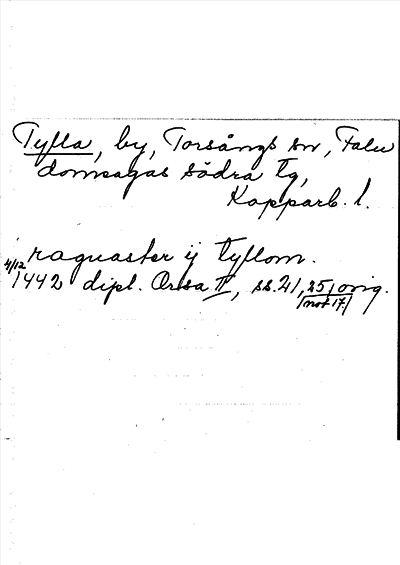 Tylla, by, Torsångs sn, Falu
domsagas södra tg,
Kopparb. l.
ragnaster ij tyllom.
4/12 1442 dipl. Orsa II, ss. 21, 25, orig.
(not 17.)